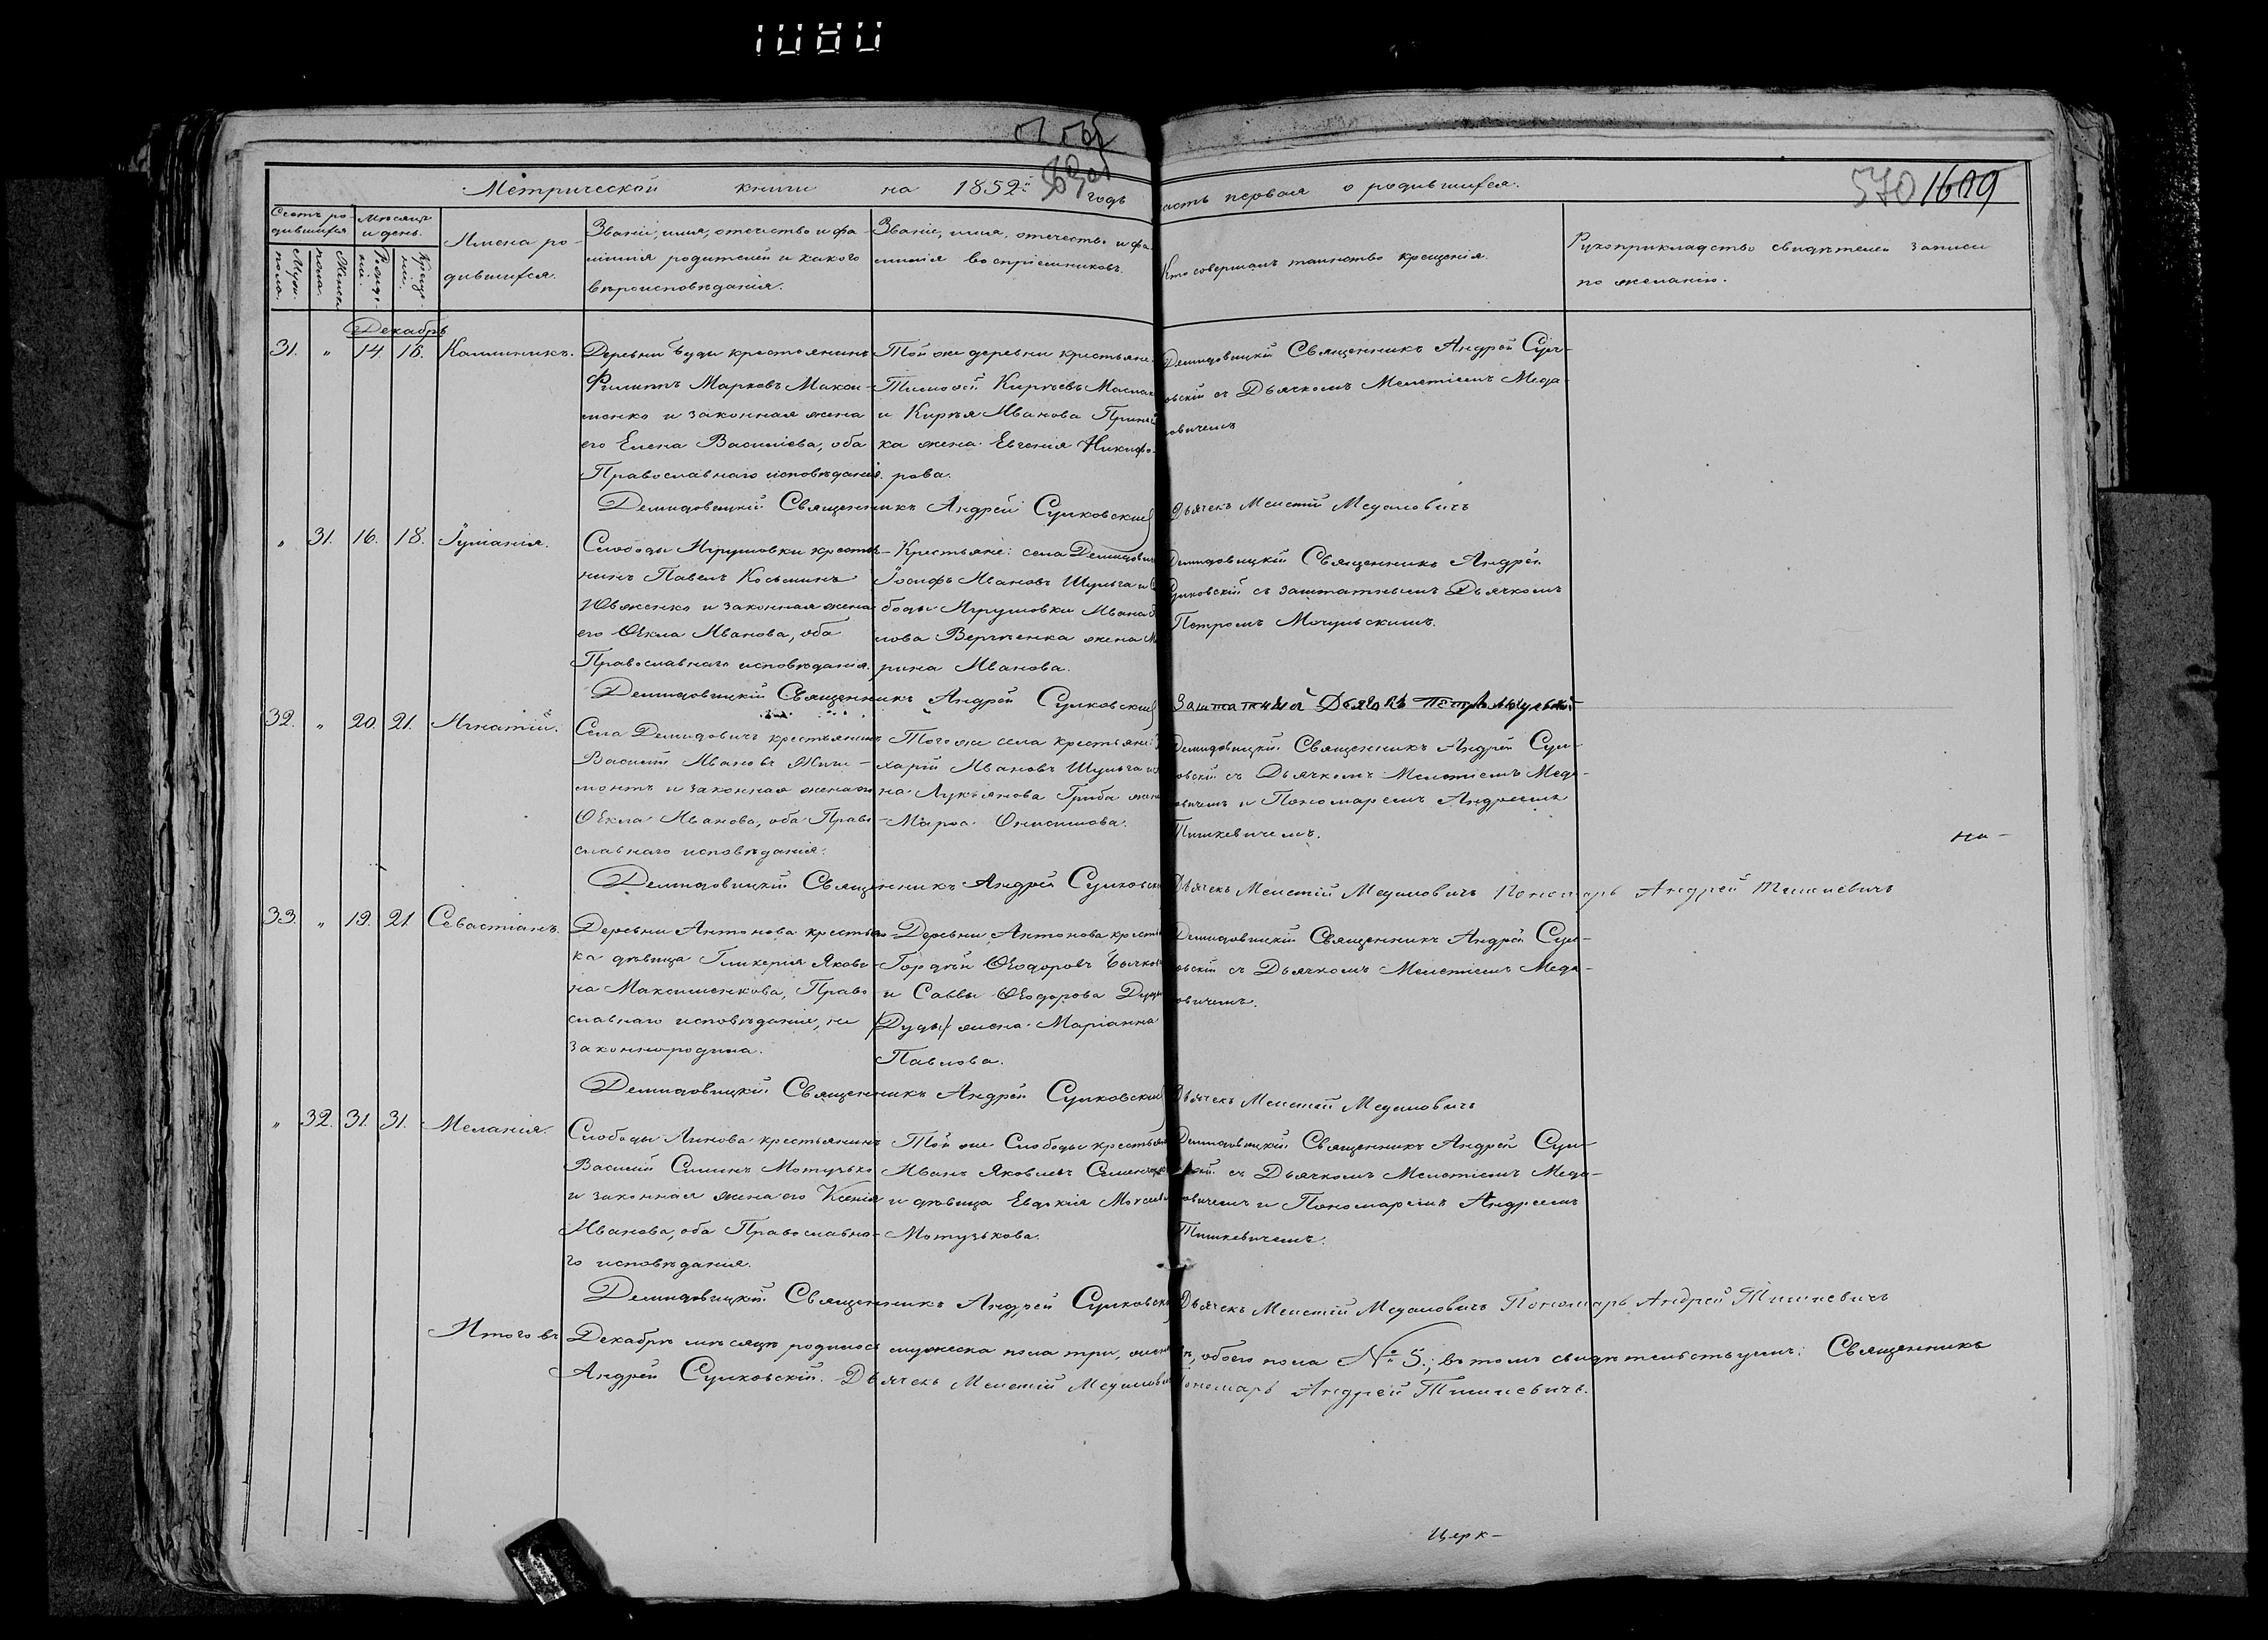 1080
Метрической книги на 1852й годъ часть первая о родившихся.
570 1609
Счетъ родившихся
Мѣсяцъ и день.
Имена родившихся.
Званіе, имя, отчество и фамилія родителей и какого вѣроисповѣданія.
Званіе, имя, отчество и фамилія воспріемниковъ.
Кто совершалъ таинство крещенія.
Рукоприкладство свидѣтелей записи по желанію.
Мужеска пола.
Женска пола.
Рожденія.
Крещенія.
Декабрь
31. " 14. 16. Каллиникъ.
Деревни Буди крестьянинъ
Филиппъ Марковъ Макси-
менко и законная жена
его Елена Васильева, оба
Православнаго исповѣданія.
Той же деревни крестьяне:
Тимофей Кирѣевъ
и Кирѣя Иванова
ка жена Евгенія Никифо-
рова.
Демидовицкій Священникъ Андрей Сул-
ковскій съ Дьячкомъ Мелетіемъ Меда-
ловичемъ
Демидовицкій Священникъ Андрей Сулковскій Дьячекъ Мелетій Медаловичъ
" 31. 16. 18. Іуліанія.
Слободы Игрушовки крестья-
нинъ Павелъ Косьминъ
Ивженко и законная жена
его Ѳекла Иванова, оба
Православнаго исповѣданія.
Крестьяне: села Демидовичъ
Іосифъ Ивановъ Шульга и
боды Игрушовки Ивана
лова Вергѣенка жена
рина Иванова.
Демидовицкій Священникъ Андрей
Сулковскій съ заштатнымъ Дьячкомъ
Петромъ Мочульскимъ.
Демидовицкій Священникъ Андрей Сулковскій Заштатный Дьячекъ Петръ Мочульскій
32. " 20. 21. Игнатій.
Села Демидовичъ крестьянинъ
Василій Ивановъ Жиги-
монтъ и законная жена его
Ѳекла Иванова, оба Право-
славнаго исповѣданія.
Того же села крестьяне:
харій Ивановъ Шульга и
на Лукьянова Гриба жена
Марѳа Онисимова.
Демидовицкій Священникъ Андрей Сул-
ковскій съ Дьячкомъ Мелетіемъ Меда-
ловичемъ и Пономаремъ Андреемъ
Тишкевичемъ.
на-
Демидовицкій Священникъ Андрей Сулковскій Дьячекъ Мелетій Медаловичъ Пономарь Андрей Тишкевичъ
33. " 19. 21. Севастіанъ.
Деревни Антонова крестьян-
ка дѣвица Гликерія Яковле-
на Максименкова, Право-
славнаго исповѣданія, не
законнородила.
Деревни Антонова крестьяне
Гордѣй Ѳеодоровъ
и Саввы Ѳеодорова
/Дуды/ жена Маріанна
Павлова.
Демидовицкій Священникъ Андрей Сул-
ковскій съ Дьячкомъ Мелетіемъ Меда-
ловичемъ.
Демидовицкій Священникъ Андрей Сулковскій Дьячекъ Мелетій Медаловичъ
" 32. 31. 31. Меланія.
Слободы Линова крестьянинъ
Василій Симинъ Мотузько
и законная жена его Ксенія
Иванова, оба Православна-
го исповѣданія.
Той же Слободы крестьяне
Иванъ Яковлевъ
и дѣвица Евдокія
Мотузькова.
Демидовицкій Священникъ Андрей Сул-
ковскій съ Дьячкомъ Мелетіемъ Меда-
ловичемъ и Пономаремъ Андреемъ
Тишкевичемъ.
Демидовицкій Священникъ Андрей Сулковскій Дьячекъ Мелетій Медаловичъ Пономарь Андрей Тишкевичъ
Итого въ Декабрѣ мѣсяцѣ родилось мужеска пола три, женска обоего пола № 5.; въ томъ свидѣтельствуемъ: Священникъ
Андрей Сулковскій. Дьячекъ Мелетій Медаловичъ Пономарь Андрей Тишкевичъ.
Церк-